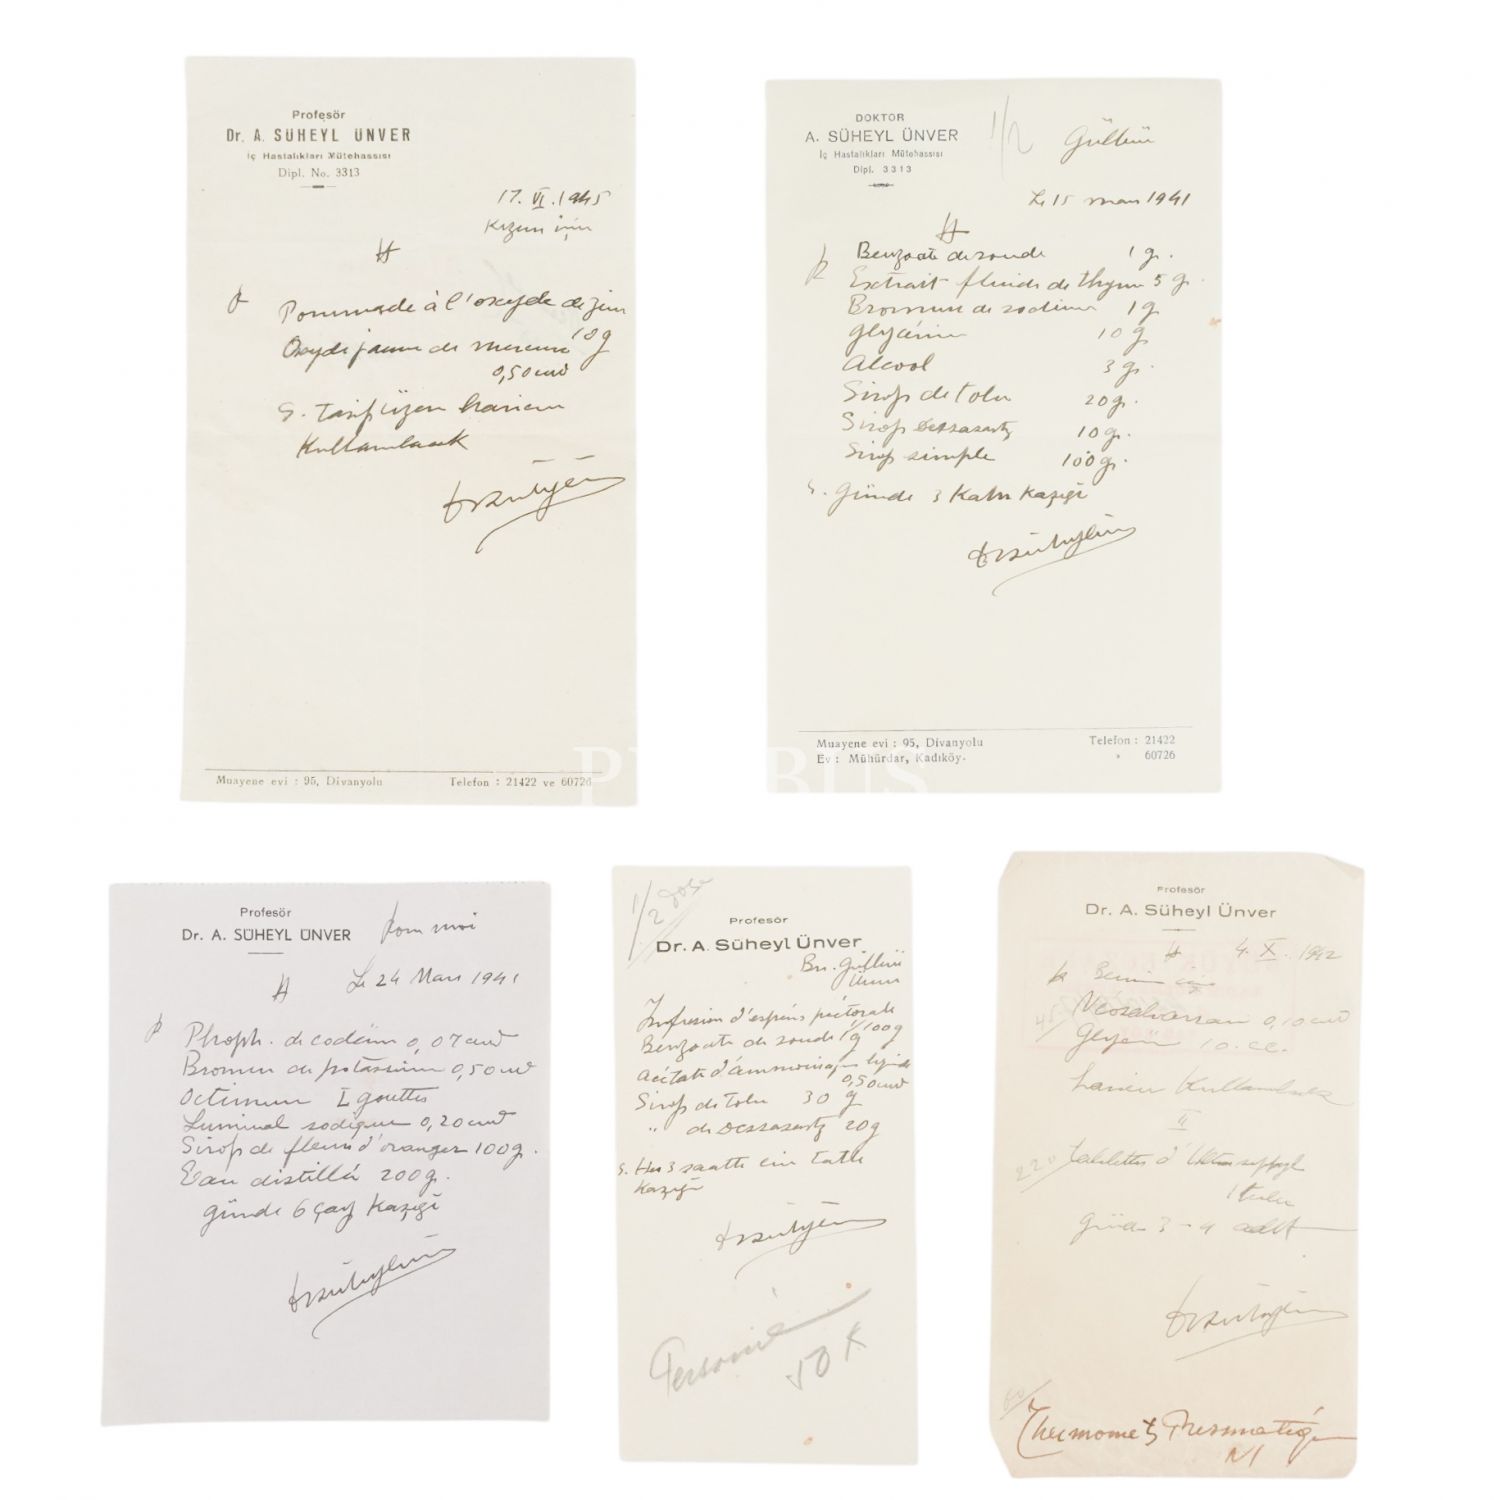 Profesör
Dr. A. SÜHEYL ÜNVER
İç Hastalıkları Mütehassısı
Dipl. No. 3313
17. VI. 1945
Kızım için
Pommade à l'oxyde de zinc
10 g
Oxyde jaune de mercure
0,50
S. Tarif üzere haricen
Kullanılacak
Muayene evi : 95, Divanyolu Telefon : 21422 ve 60726
DOKTOR
A. SÜHEYL ÜNVER
İç Hastalıkları Mütehassısı
Dipl. 3313
1/2 Gülbün
Le 15 mars 1941
Benzoate de soude 1 g.
Extrait fluide de thym 5 g.
Bromure de sodium 1 g
Glycérine 10 g
Alcool 3 g.
Sirop de tolu 20 g.
Sirop Dessasartz 10 g.
Sirop simple 100 g.
S. Günde 3 Kahve Kaşığı
Muayene evi : 95, Divanyolu Telefon : 21422
Ev : Mühürdar, Kadıköy. 60726
PHEBUS
Profesör
Dr. A. SÜHEYL ÜNVER
Pour moi
Le 24 Mars 1941
Phosph. de codéine 0,07
Bromure de potassium 0,50
Octinum I gouttes
Luminal sodique 0,20
Sirop de fleurs d'oranger 100 g.
Eau distillé 200 g.
günde 6 çay Kaşığı
1/2 dose
Profesör
Dr. A. Süheyl Ünver
Bn. Gülbün
Ünver
Infusion d'espèces pectorale
1/100 g
Benzoate de soude 1 g
Acétate d'ammoniaque liquide
0,50
Sirop de Tolu 30 g
" de Dessasartz 20 g
S. Her 3 saatte bir Tatlı
Kaşığı
50 K
Profesör
Dr. A. Süheyl Ünver
4. X. 1942
Benim için
Néosalvarsan 0,10
Glycerin 10. cc.
haricen Kullanılacak
II
220
Tablettes d'Ultraseptyl
1 tube
Günde 3 - 4 adet
Thermometr Prismatique
N1